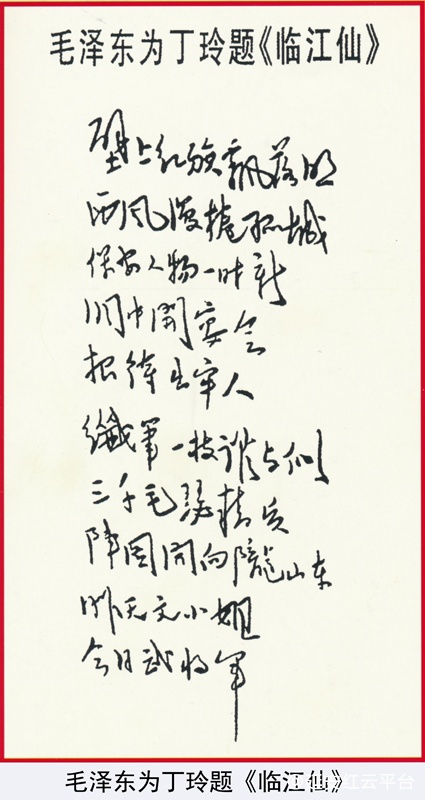 毛泽东为丁玲题《临江仙》
壁上红旗飘落照
西风漫捲孤城
保安人物一时新
洞中開宴会
招待出牢人
纖筆一枝谁与似
三千毛瑟精兵
阵图開向隴山东
昨天文小姐
今日武将军
毛泽东为丁玲题《临江仙》
红云平台